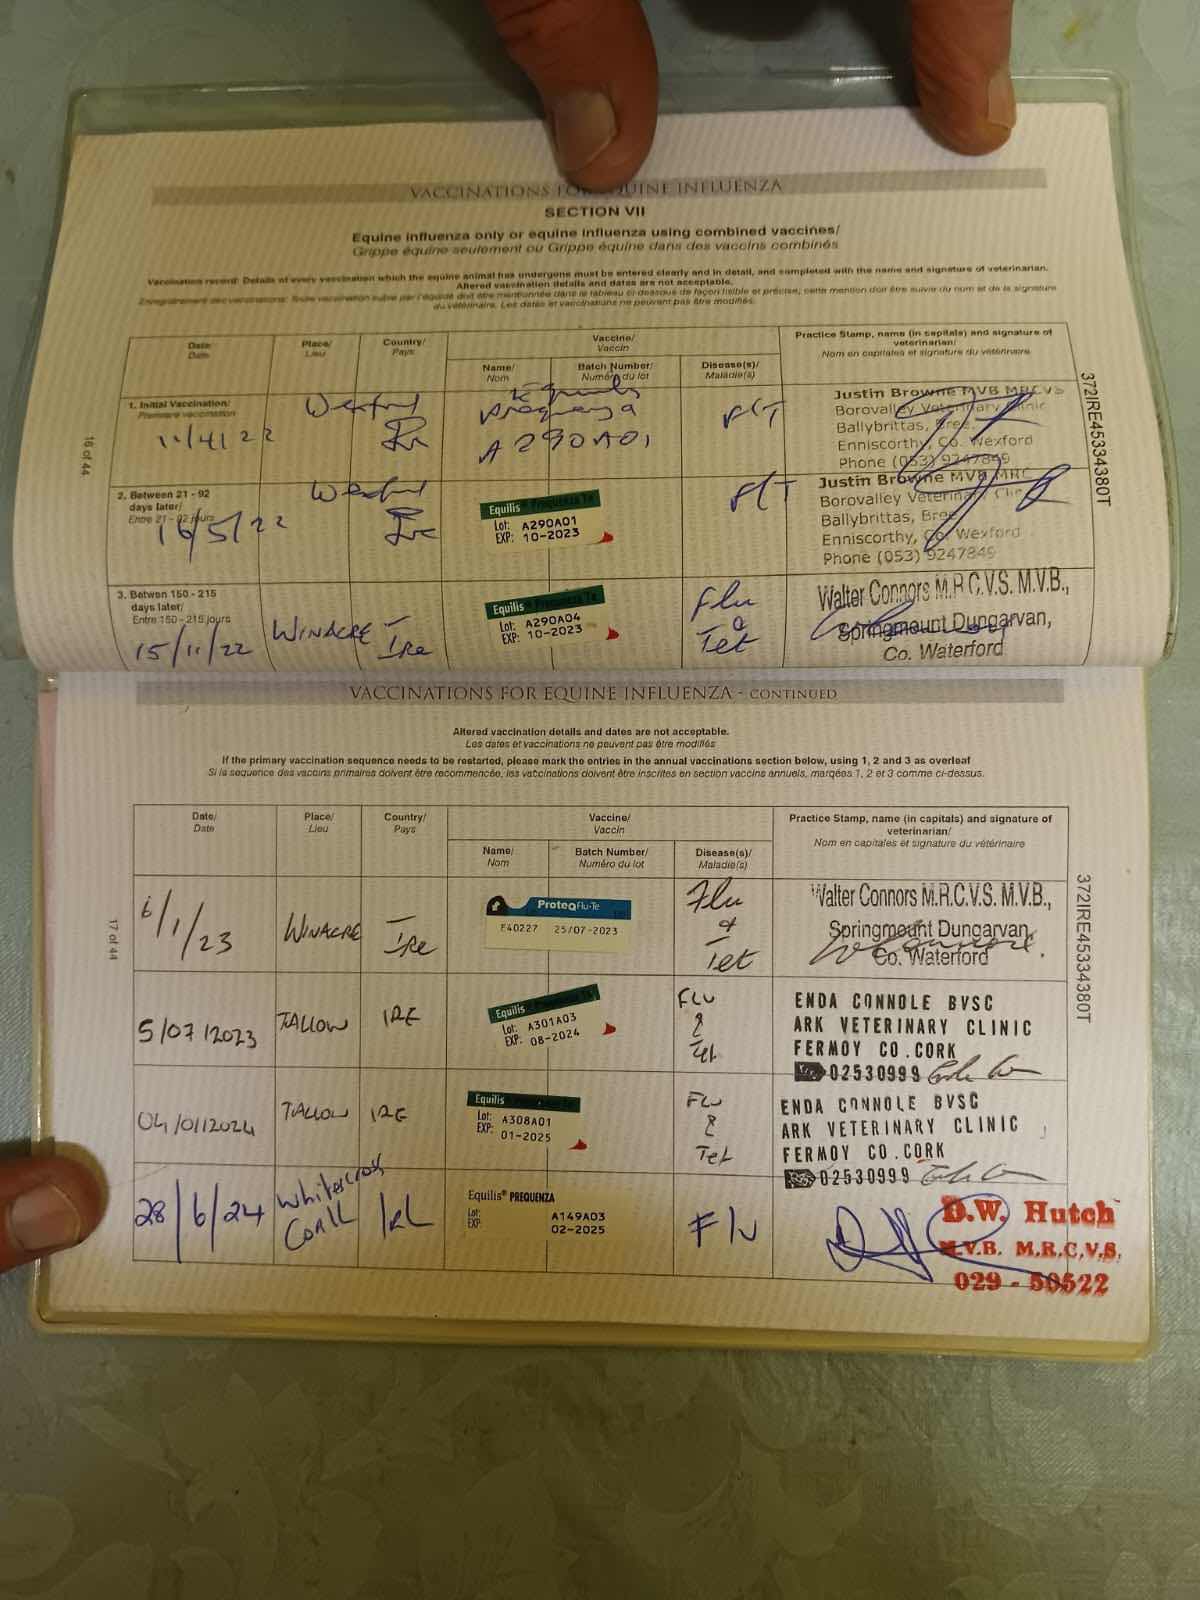 VACCINATIONS FOR EQUINE INFLUENZA
SECTION VII
Equine influenza only or equine influenza using combined vaccines/
Grippe équine seulement ou Grippe équine dans des vaccins combinés
Vaccination record: Details of every vaccination which the equine animal has undergone must be entered clearly and in detail, and completed with the name and signature of veterinarian.
Altered vaccination details and dates are not acceptable.
Enregistrement des vaccinations: Toute vaccination subie par l'équidé doit être mentionnée dans le tableau ci-dessous de façon lisible et précise; cette mention doit être suivie du nom et de la signature
du vétérinaire. Les dates et vaccinations ne peuvent pas être modifiés.
Date/
Date
Place/
Lieu
Country/
Pays
Vaccine/
Vaccin
Name/
Nom
Batch Number/
Numéro du lot
Disease(s)/
Maladie(s)
Practice Stamp, name (in capitals) and signature of
veterinarian/
Nom en capitales et signature du vétérinaire
1. Initial Vaccination/
Première vaccination
11/4/22
Wexford
Ire
Equilis
Prequenza
A290A01
F/T
Justin Browne MVB MRCVS
Borovalley Veterinary Clinic
Ballybrittas, Bree,
Enniscorthy, Co. Wexford
Phone (053) 9247849
2. Between 21 - 92
days later/
Entre 21 - 92 jours
16/5/22
Wexford
Ire
Equilis Prequenza Te
Lot: A290A01
EXP: 10-2023
F/T
Justin Browne MVB MRC
Borovalley Veterinary Clinic
Ballybrittas, Bree
Enniscorthy, Co. Wexford
Phone (053) 9247849
3. Betwen 150 - 215
days later/
Entre 150 - 215 jours
15/11/22
WINACRE
Ire
Equilis Prequenza Te
Lot: A290A04
EXP: 10-2023
Flu
&
Tet
Walter Connors M.R.C.V.S. M.V.B.,
Springmount Dungarvan,
Co. Waterford
16 of 44
372IRE45334380T
VACCINATIONS FOR EQUINE INFLUENZA - CONTINUED
Altered vaccination details and dates are not acceptable.
Les dates et vaccinations ne peuvent pas être modifiés
If the primary vaccination sequence needs to be restarted, please mark the entries in the annual vaccinations section below, using 1, 2 and 3 as overleaf
Si la sequence des vaccins primaires doivent être recommencée, les vaccinations doivent être inscrites en section vaccins annuels, marqées 1, 2 et 3 comme ci-dessus.
Date/
Date
Place/
Lieu
Country/
Pays
Vaccine/
Vaccin
Name/
Nom
Batch Number/
Numéro du lot
Disease(s)/
Maladie(s)
Practice Stamp, name (in capitals) and signature of
veterinarian/
Nom en capitales et signature du vétérinaire
6/1/23
WINACRE
Ire
ProteqFlu-Te
E40227 25/07-2023
Flu
&
Tet
Walter Connors M.R.C.V.S. M.V.B.,
Springmount Dungarvan,
Co. Waterford
5/07/2023
TALLOW
IRE
Equilis Prequenza Te
Lot: A301A03
EXP: 08-2024
FLU
&
Tet
ENDA CONNOLE BVSC
ARK VETERINARY CLINIC
FERMOY CO.CORK
02530999
04/01/2024
TALLOW
IRE
Equilis
Lot: A308A01
EXP: 01-2025
FLU
&
Tet
ENDA CONNOLE BVSC
ARK VETERINARY CLINIC
FERMOY CO.CORK
02530999
28/6/24
Whitecross
IRL
Equilis® PREQUENZA
Lot: A149A03
EXP: 02-2025
Flu
D.W. Hutch
M.V.B. M.R.C.V.S.
029 - 50522
17 of 44
372IRE45334380T